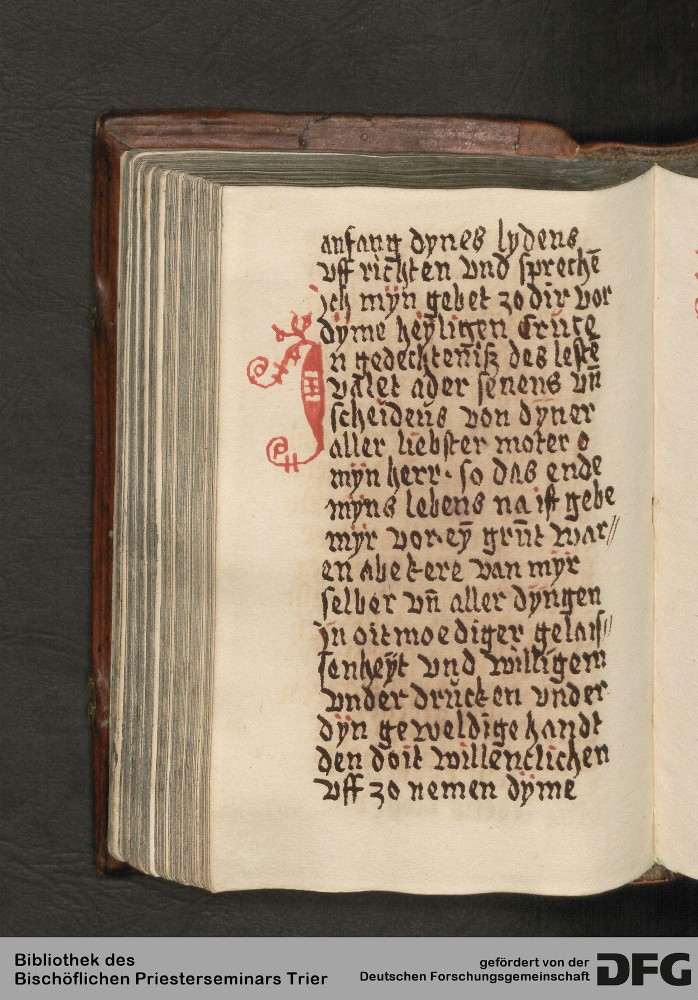 anfang dynes lydens
vff richten vnd sprechē
ich mÿn gebet zo dir vor
dÿme heÿligen Crůce
In gedechteniß des lestē
valet ader senens vn̄
scheidens von dÿner
aller liebster moter o
mÿn herr. so das ende
mÿns lebens na ist gebe
mÿr vor eȳ grūt war//
en abekere van mÿr
selber vn̄ aller dÿngen
in oitmoediger gelais//
senheÿt vnd willigem
vnder drucken vnder
dÿn geweldige handt
den doit willenclichen
vff zo nemen dÿme
Bibliothek des
Bischöflichen Priesterseminars Trier
gefördert von der
Deutschen Forschungsgemeinschaft DFG